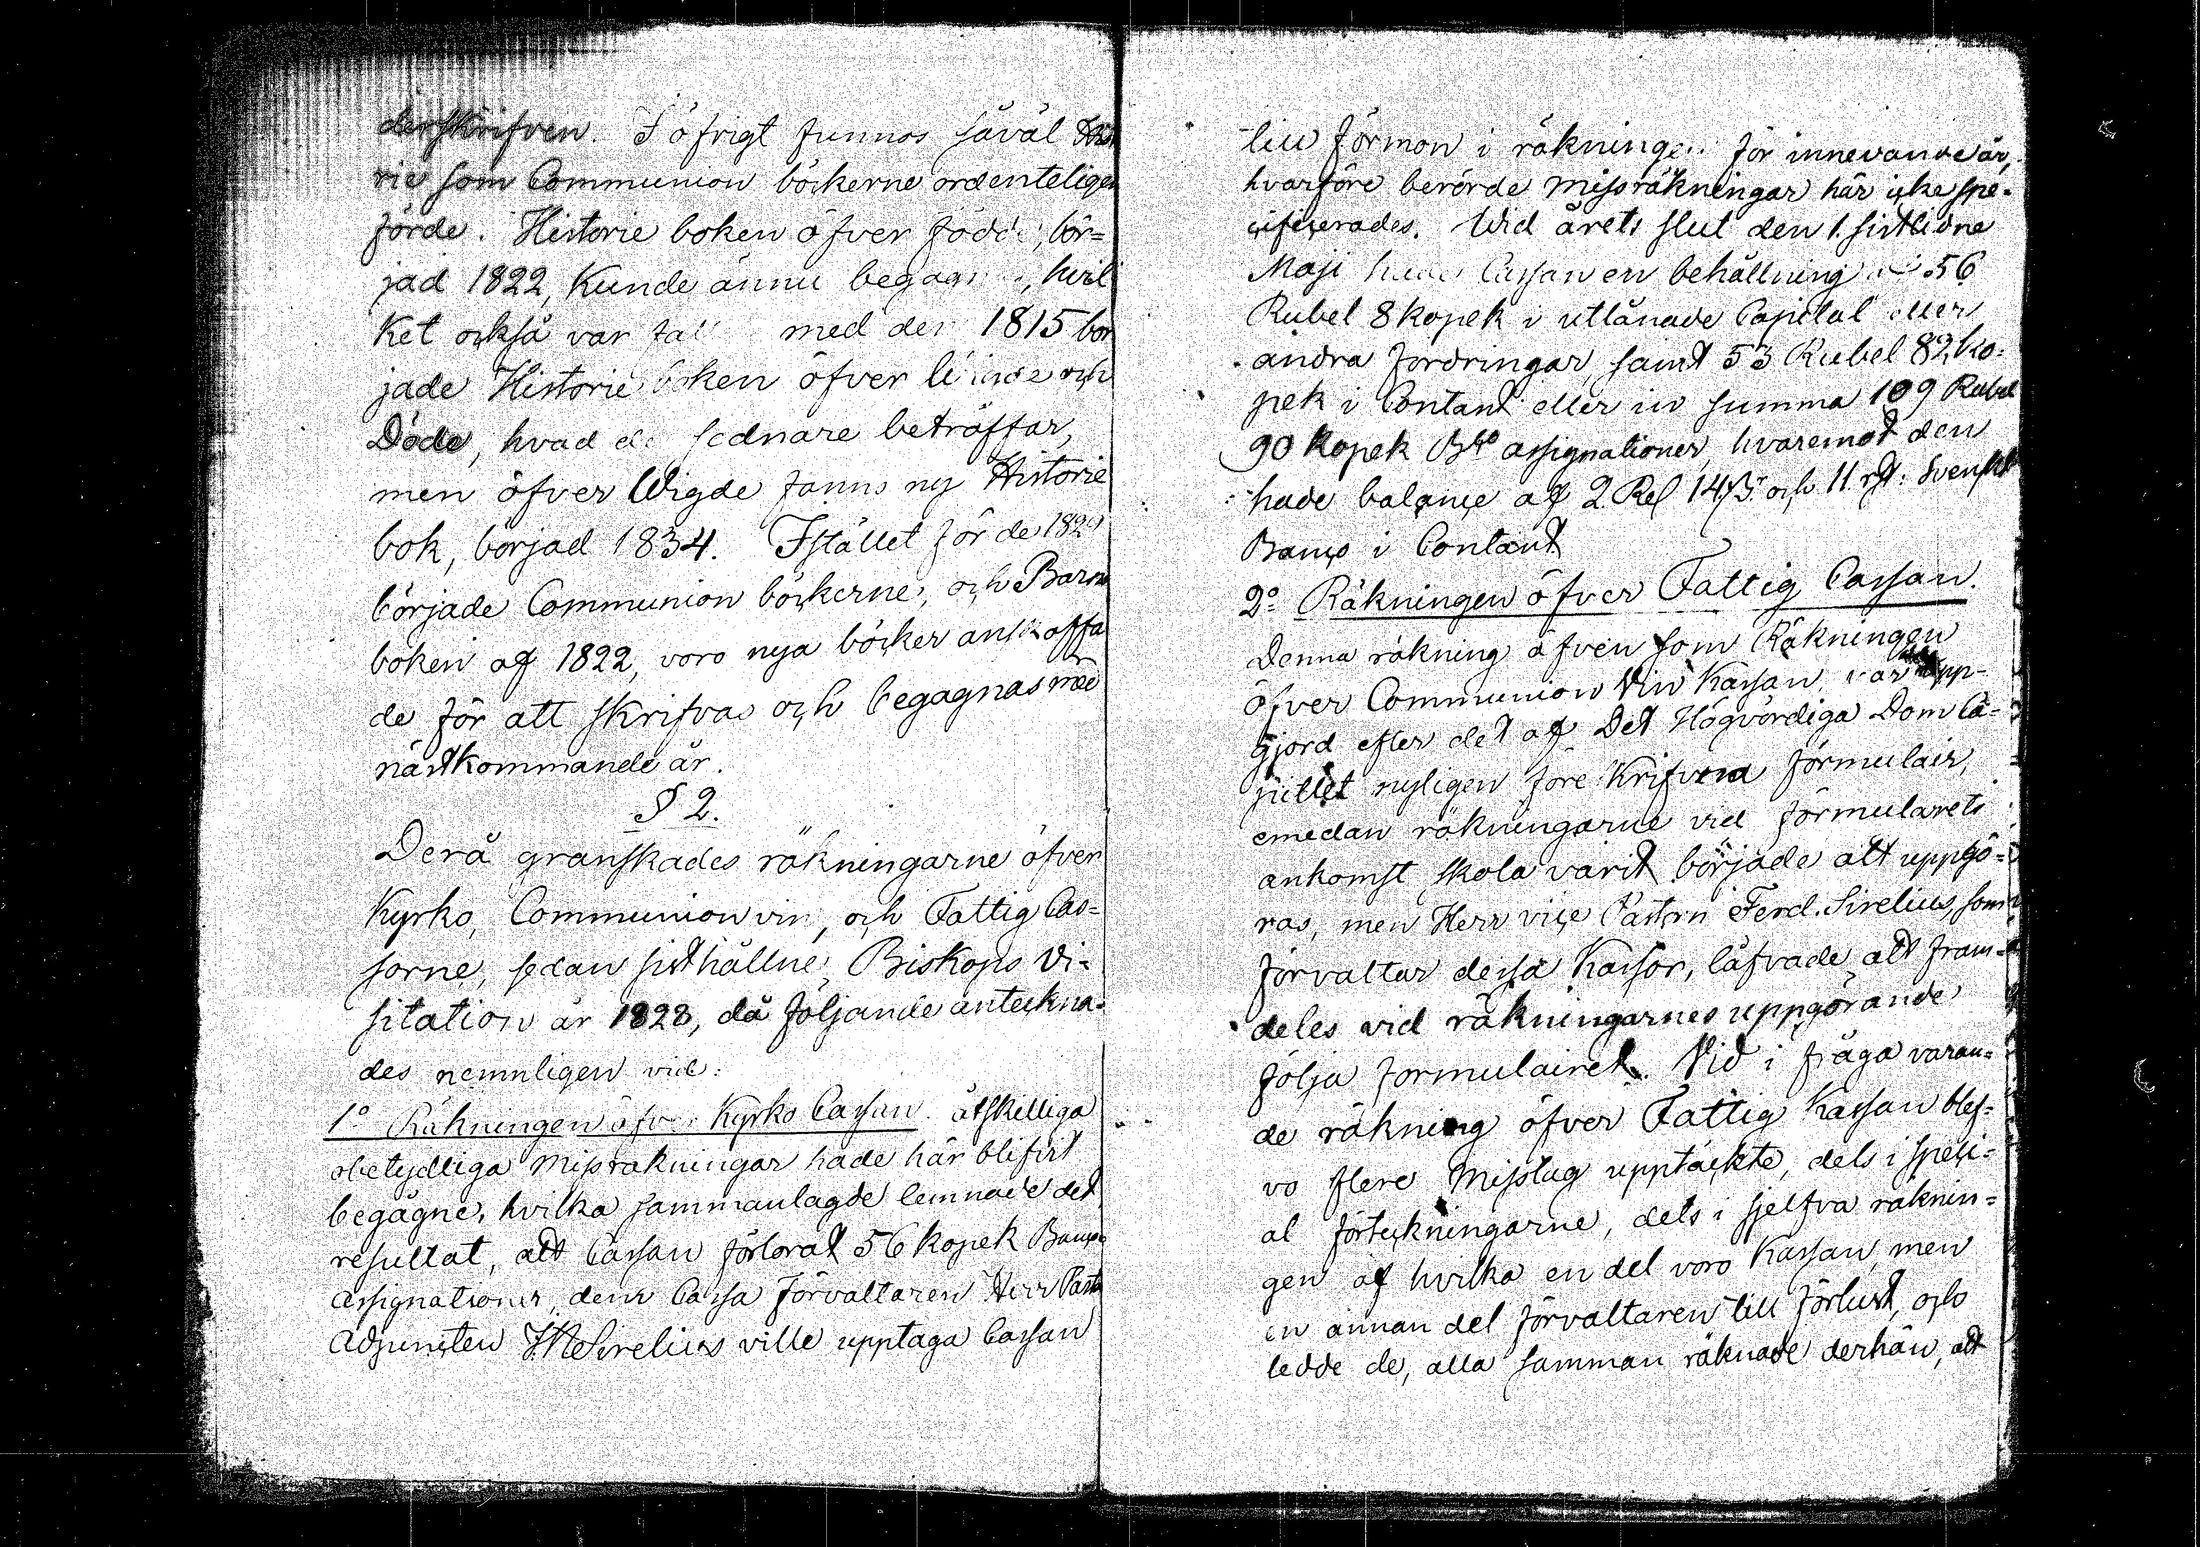 derskrifven. I öfrigt funnos såväl Histo
rie som Communion böckerne ordenteligen
förde. Historie boken öfver födde, bör=
jad 1822, kunde ännu begagnas, hvil
ket också var fallet med den 1815 bör
jade Historie boken öfver och
Döde, hvad de sednare beträffar,
men öfver Wigde fanns ny Historie
bok, börjad 1834. Istället för de 1829
började Communion böckerne, och Barn
boken af 1822, voro nya böcker anskaffa
de för att skrifvas och begagnas med
nästkommande år.
§ 2.
Derå granskades räkningarne öfver
Kyrko, Communion vin, och Fattig Cas=
sorne, sedan sisthållne Biskops Vi=
sitation år 1828, då följande anteckna=
des nemnligen vid:
1:o Räkningen öfver Kyrko Cassan. åtskilliga
obetydliga Missräkningar hade här blifvit
begågne, hvilka sammanlagde lemnade det
resultat, att Cassan förlorat 56 kopek Banco
assignationer, dem Cassa Förvaltaren Herr Past
Adjuncten Sirelius ville upptaga Cassan
till förmon i räkningen för innevande år,
hvarföre berörde missräkningar här icke spe=
cificerades. Wid årets slut den 1. sistlidne
Maji hade Cassan en behållning af 56
Rubel 8 kopek i utlånade Capital eller
andra fordringar, samt 53 Rubel 82 ko=
pek i Contant eller in summa 109 Rubel
90 kopek Bco assignationer, hvaremot den
hade balance af 2 R 14 ß och 11 rst. Svenskt
Banco i Contant
2:o Räkningen öfver Fattig Cassan.
Denna räkning äfven som Räkningen
öfver Communion Vin Kassan var upp-
gjord efter det af Det Högvördiga Dom Ca=
pitlet nyligen föreskrifvna formulair,
emedan räkningarne vid formularets
ankomst skola varit började att uppgö=
ras, men Herr vice Pastorn Ferd. Sirelius, som
förvaltar dessa Kassor, låfvade att fram=
deles vid räkningarnes uppgörande
följa formulairet. Vid i fråga varan=
de räkning öfver Fattig Kassan blef=
vo flere Misstag upptäckte, dels i speci=
al förteckningarne, dels i sjelfva räknin=
gen af hvilka en del voro Kassan, men
en annan del förvaltaren till förlust, och
ledde de, alla samman räknade derhän, att